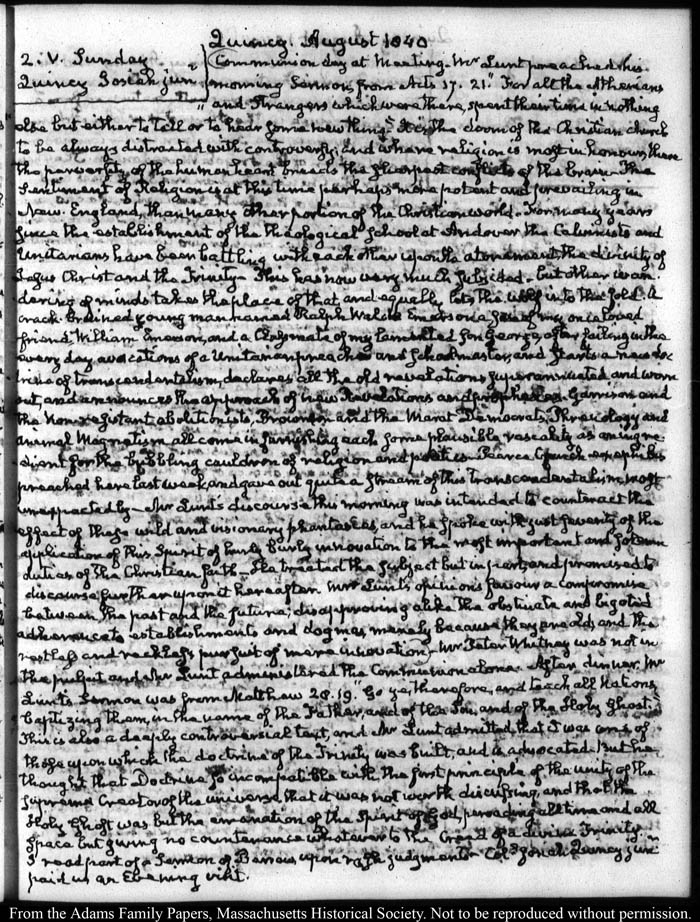 Quincy. August 1840
2. V. Sunday
Quincy Josiah jun.r
Communion day at Meeting. Mr Lunt preached his
morning Sermon from Acts 17. 21. "For all the Athenians
and Strangers which were there, spent their time in nothing
else but either to tell or to hear some new thing." It is the doom of the Christian church
to be always distracted with controversy, and where religion is most in honour, there
the perversity of the human heart breeds the sharpest conflicts of the brain. The
Sentiment of Religion is at this time perhaps more potent and prevailing in
New-England, than in any other portion of the Christian world. For many years
since the establishment of the Theological School at Andover the Calvinists and
Unitarians have been battling with each other upon the atonement, the divinity of
Jesus Christ and the Trinity— This has now very much subsided. but other wan
dering of minds takes the place of that and equally lets the wolf in to the fold. A
crack-brained young man named Ralph Waldo Emerson a son of my once loved
friend William Emerson, and a Classmate of my lamented son George, after failing in the
every day avocations of a Unitarian preacher and schoolmaster, and starts a new doc
trine of transcendentalism, declares all the old revelations superannuated and worn
out, and announces the approach of new Revelations and prophecies. Garrison and
the Non-resistant abolitionists, Brownson and the Marat Democrats, Phrenology and
animal Magnetism all come in furnishing each some plausible rascality as an ingre
dient for the bubbling cauldron of religion and politics. Pearce Cranch ex ephebis
preached here last week and gave out quite a stream of this transcendentalism most
unexpectedly— Mr Lunt's discourse this morning was intended to counteract the
effect of these wild and visionary phantasies, and he spoke with just severity of the
application of this Spirit of hurly burly innovation to the most important and solemn
duties of the Christian faith— He treated the subject but in part, and promised to
discourse further upon it hereafter. Mr Lunt's opinions favour a compromise
between the past and the future; disapproving alike the obstinate and bigoted
adherence to establishments and dogmas, merely because they are old, and the
restless and reckless pursuit of mere innovation— Mr Peter Whitney was not in
the pulpit and Mr Lunt administered the Communion alone. After dinner, Mr
Lunt's Sermon was from Matthew 28. 19. "Go ye, therefore, and teach all Nations,
baptizing them, in the name of the Father, and of the Son, and of the Holy Ghost."
This is also a deeply controversial text, and Mr Lunt admitted that it was one of
those upon which the doctrine of the Trinity was built, and is advocated. But he
thought that Doctrine so incompatible with the first principle of the unity of the
Supreme Creator of the universe that it was not worth discussing, and that the
Holy Ghost was but the emanation of the Spirit of God, pervading all time and all
space but giving no countenance whatever to the Creed of a divine Trinity.
I read part of a Sermon of Barrow upon rash judgments— Col.l Josiah Quincy jun.r
paid us an Evening visit.
From the Adams Family Papers, Massachusetts Historical Society. Not to be reproduced without permission.